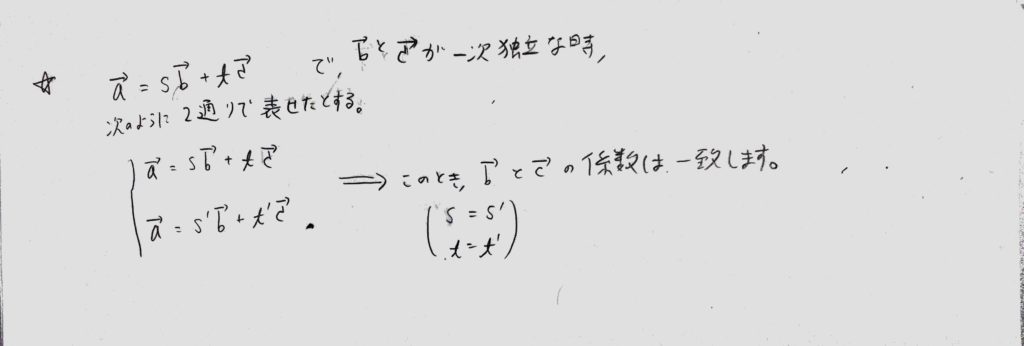 ☆ a⃗ = sb⃗ + tc⃗ で, b⃗ と c⃗ が一次独立な時,
次のように2通りで表せたとする。
a⃗ = sb⃗ + tc⃗
a⃗ = s'b⃗ + t'c⃗.
⟹ このとき, b⃗ と c⃗ の係数は一致します。
(s = s'
t = t')